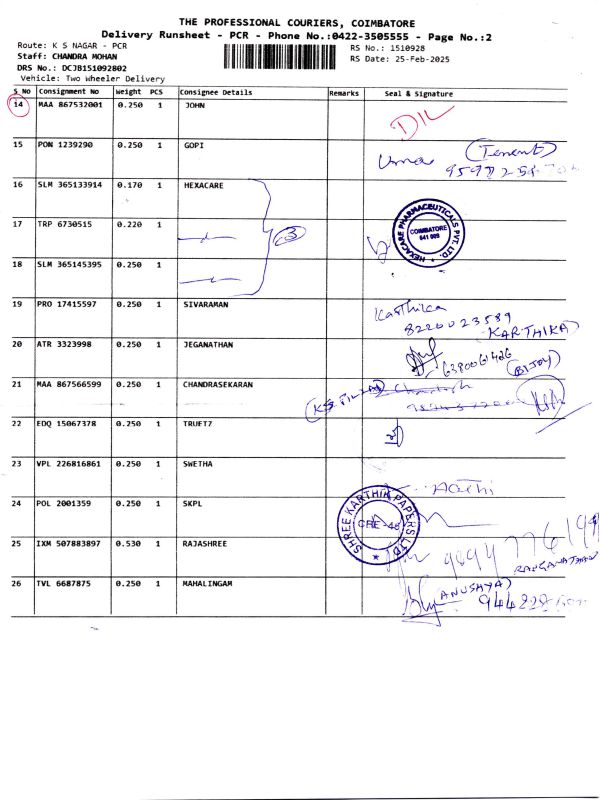 THE PROFESSIONAL COURIERS, COIMBATORE
Delivery Runsheet - PCR - Phone No.:0422-3505555 - Page No.:2
Route: K S NAGAR - PCR
RS No.: 1510928
Staff: CHANDRA MOHAN
RS Date: 25-Feb-2025
DRS No.: DCJB151092802
Vehicle: Two Wheeler Delivery
S_No Consignment No Weight PCS Consignee Details Remarks Seal & Signature
14 MAA 867532001 0.250 1 JOHN
15 PON 1239290 0.250 1 GOPI Uma (Tenent)
16 SLM 365133914 0.170 1 HEXACARE
17 TRP 6730515 0.220 1 3
HEXACARE PHARMACEUTICALS PVT. LTD. COIMBATORE 641 005
18 SLM 365145395 0.250 1
19 PRO 17415597 0.250 1 SIVARAMAN Karthika
8220023589
(KARTHIKA)
20 ATR 3323998 0.250 1 JEGANATHAN
6380061426 (BIJOY)
21 MAA 867566599 0.250 1 CHANDRASEKARAN
22 EDQ 15067378 0.250 1 TRUET7
23 VPL 226816861 0.250 1 SWETHA
24 POL 2001359 0.250 1 SKPL
SHREE KARTHIK PAPERS LTD CBE-48
25 IXM 507883897 0.530 1 RAJASHREE
RANGANATHAN
26 TVL 6687875 0.250 1 MAHALINGAM (ANUSHYA)